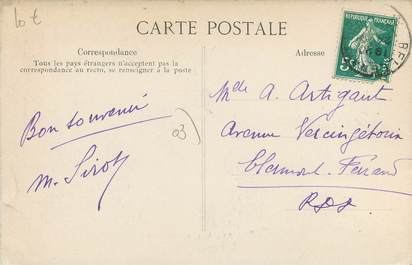 10 €
CARTE POSTALE
Correspondance
Tous les pays étrangers n'acceptent pas la
correspondance au recto, se renseigner à la poste
Adresse
Bon souvenir
M. Sirot
03
Mlle A. Artigaut
Avenue Vercingétorix
Clermont-Ferrand